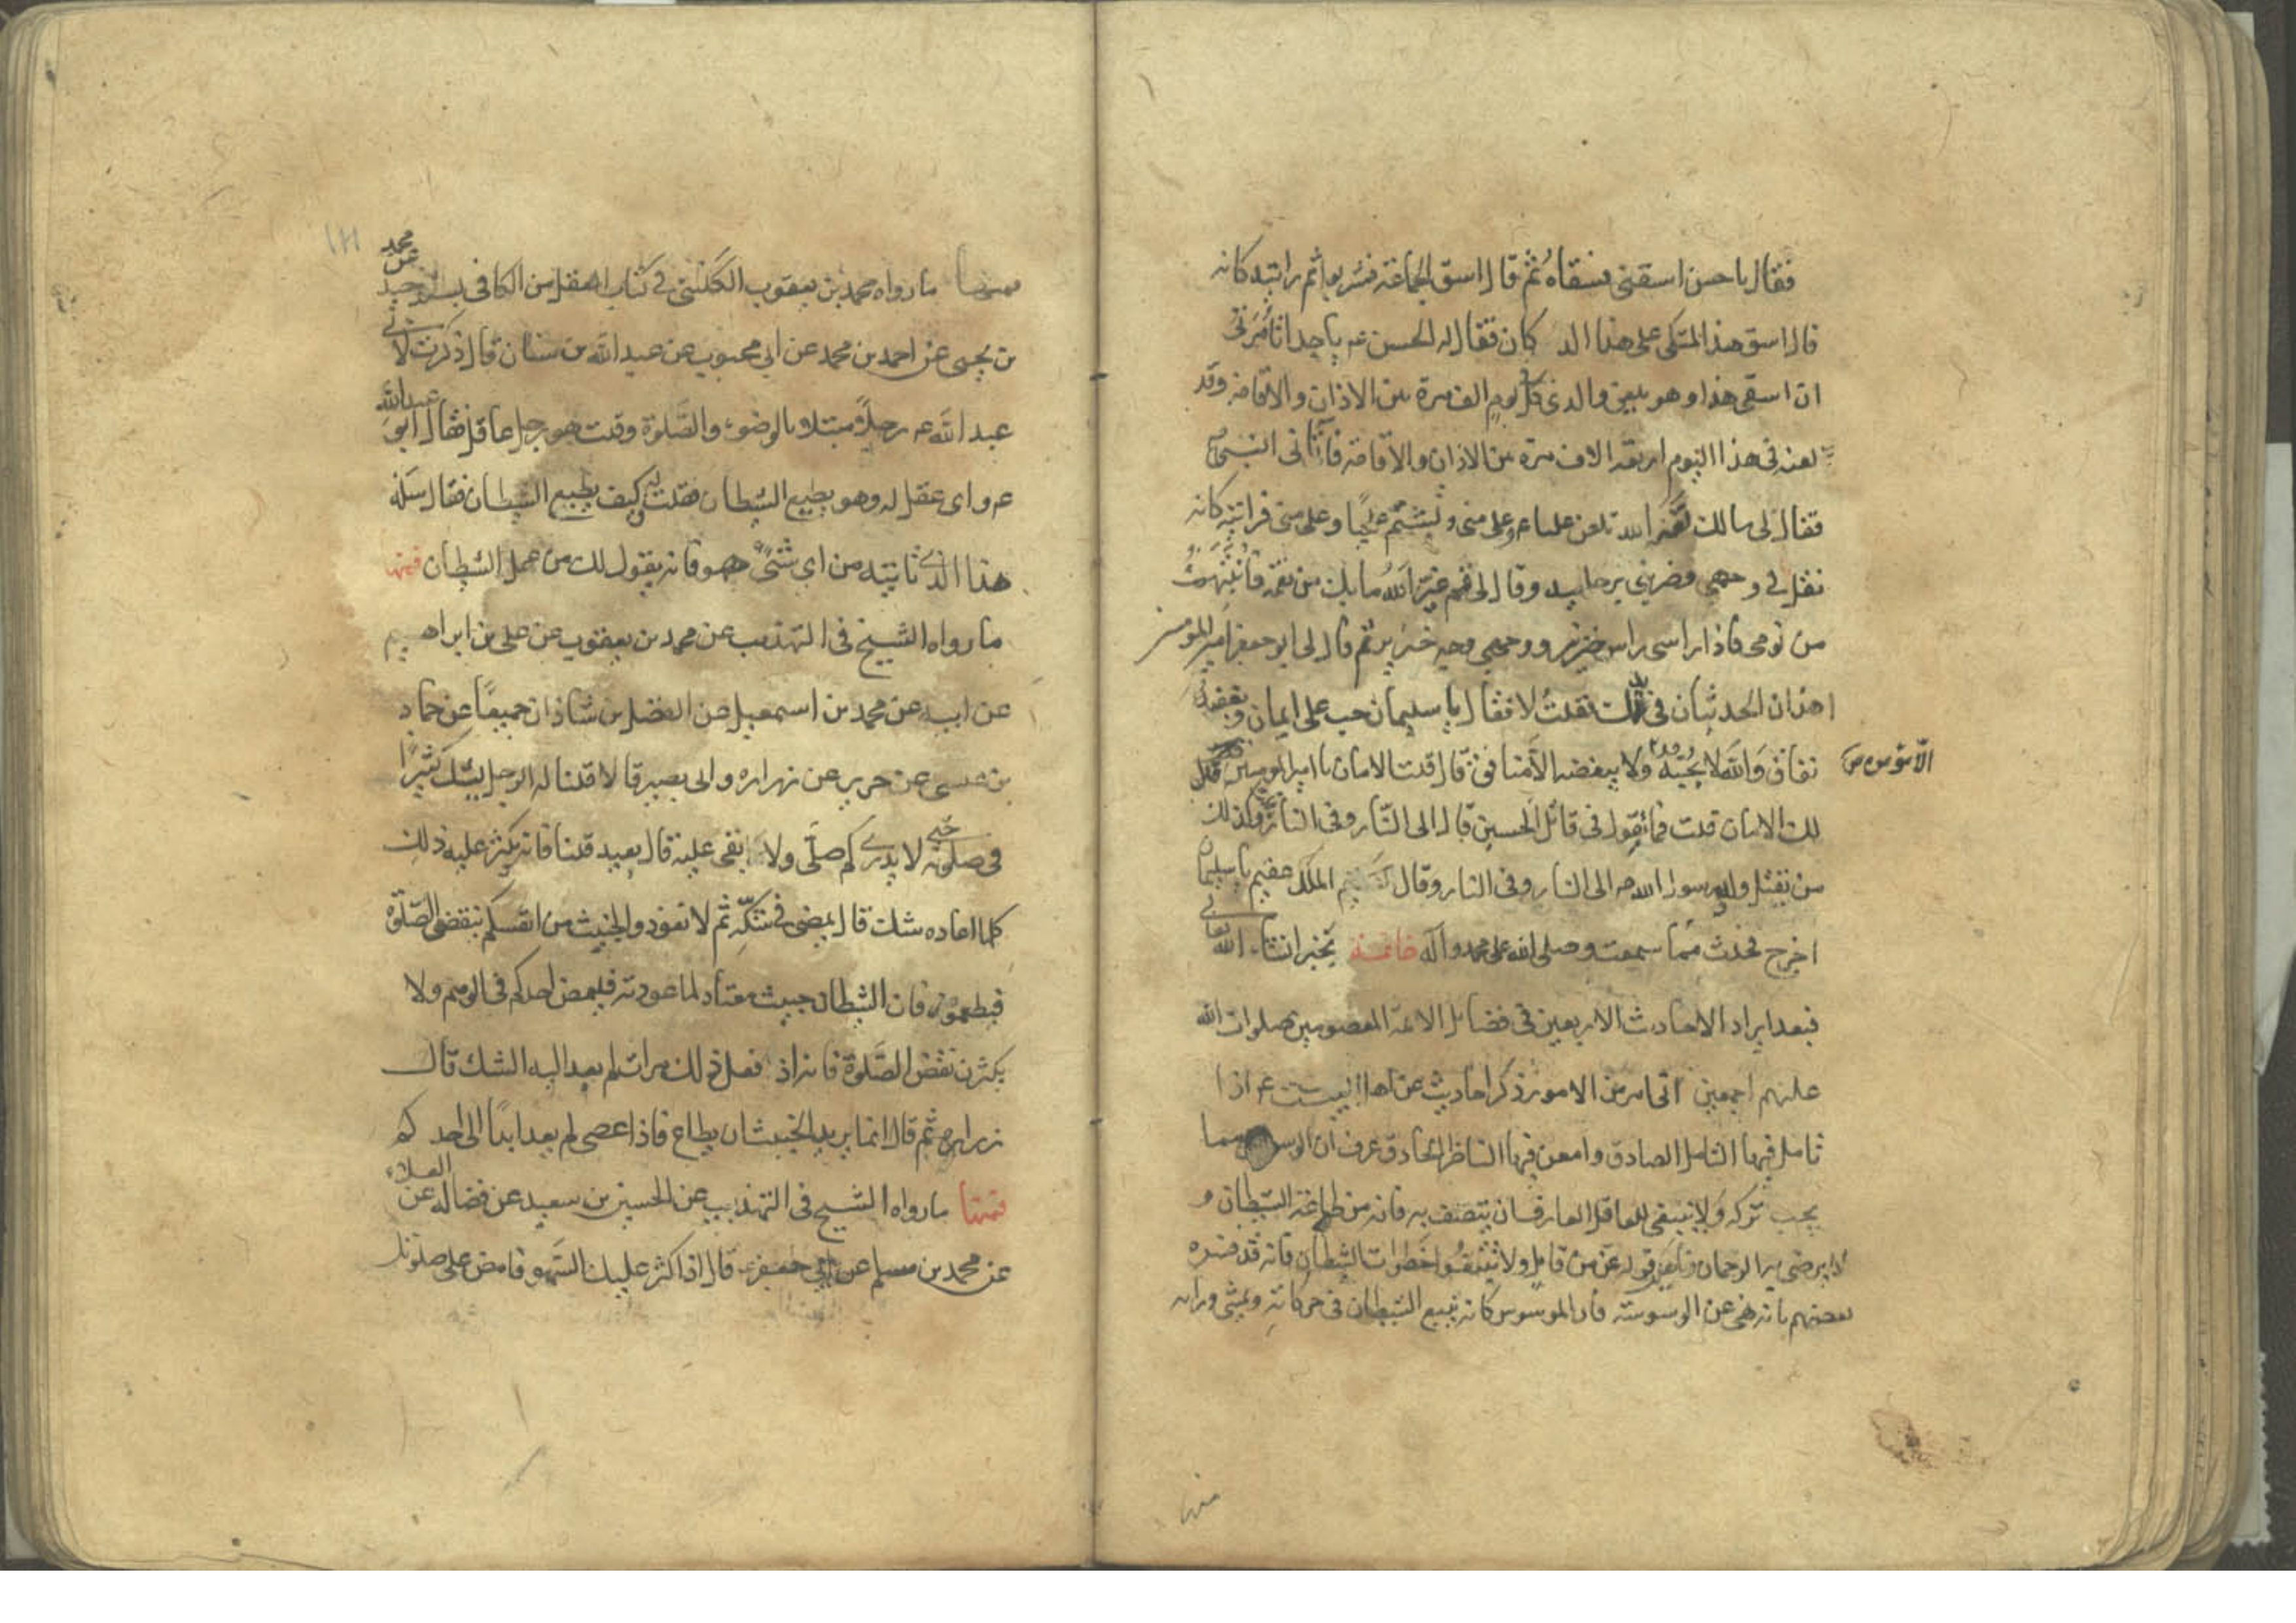 فقال يا حسن اسقنى فسقاهُ ثم قال اسق الجماعة فشربوا ثم رايته كانه
قال اسق هذا المتكى على هذا الدكان فقال له الحسن عم يا جد اتأمُرنى
ان اسقى هذا وهو يلعن والدى كل يوم الف مرة بين الاذان والاقامة وقد
لعنه فى هذا اليوم اربعة الاف مرة بين الاذان والاقامة فاتانى النبى
فقال لى مالك لعنك الله تلعن عليا وعلى منى وتشتم عليّا وعلى منى فرايته كانه
تفل فى وجهى وضربنى برجليه وقال لى قم غيّر اللهُ ما بك من نعمة فانتبهت
من نومى فاذا راسى راس خنزير ووجهى وجه خنزير ثم قال لى ابو جعفر امير المومنين
اهذان الحديثان فى يدك فقلتُ لا فقال يا سليمان حب على ايمان وبغضه
نفاق وَالله لا يُحبّهُ الّا مؤمن ولا يبغضه الا منافق قال قلت الامان يا امير المومنين قال
لك الامان قلت فما تقول فى قاتل الحسين قال الى النّار وفى النار وكذلك
من يقتل ولد رسول الله ص الى النار وفى النار وقال الملك عقيم يا سليمان
اخرج فحدث مما سمعت وصلى الله على محمد وآله خاتمة بخير انشاء الله تعالى
فبعد ايراد الاحاديث الاربعين فى فضايل الائمة المعصومين صلوات الله
عليهم اجمعين من الامور ذكر احاديث عن اهل البيت عم اذا
تامل فيها التامل الصادق وامعن فيها الناظر الحاذق عرف ان الوسواس مما
يجب تركه ولا ينبغى للعاقل العارف ان يتصف به فانه من طاعة الشيطان و
لا يرضى به الرحمان قوله عز من قايل ولا تتبعُوا خطوات الشيطان فانه قد فسره
بعضهم بانه نهى عن الوسوسة فان الموسوس كانه تبع الشيطان فى حركاته ويمشى ورائه
منها
فمنها ما رواه محمد بن يعقوب الكلينى فى كتاب العقل من الكافى بسنده عن محمد
بن يحيى عن احمد بن محمد عن ابى محبوب عن عبد الله بن سنان قال ذكرت لابى
عبد الله عم رجلاً مبتلا بالوضوء والصّلوة وقلت هو رجل عاقل فقال ابو عبد الله
عم واى عقل له وهو يطيع الشيطان فقلت له وكيف يطيع الشيطان فقال سَله
هذا الذى ياتيه من اى شىءٍ هو فانه يقول لك من عمل الشيطان فمنها
ما رواه الشيخ فى التهذيب عن محمد بن يعقوب عن على بن ابراهيم
عن ابيه عن محمد بن اسمعيل عن الفضل بن شاذان جميعًا عن حماد
بن عيسى عن حريز عن زراره وابى بصير قالا قلنا له الرجل يشك كثيرًا
فى صلوته حتى لا يدرى كم صلّى ولا ما بقى عليه قال يعيد قلنا فانه يكثر عليه ذلك
كلما اعاده شك قال يمضى فى شكّه ثم لا تعود والخبيث من انفسكم بنقض الصّلوة
فتطمعوه فان الشيطان خبيث معتاد لما عود به فليمض احدكم فى الوهم ولا
يكثرن نقض الصَّلوة فانه اذا فعل ذلك مرات لم يعد اليه الشك قال
زراره ثم قال انما يريد الخبيث ان يطاع فاذا عصى لم يعد ابدًا الى احدكم
فمنها ما رواه الشيخ فى التهذيب عن الحسين بن سعيد عن فضاله عن العلاء
عن محمد بن مسلم عن ابى جعفر قال اذا كثر عليك السَّهو فامض على صلوتك